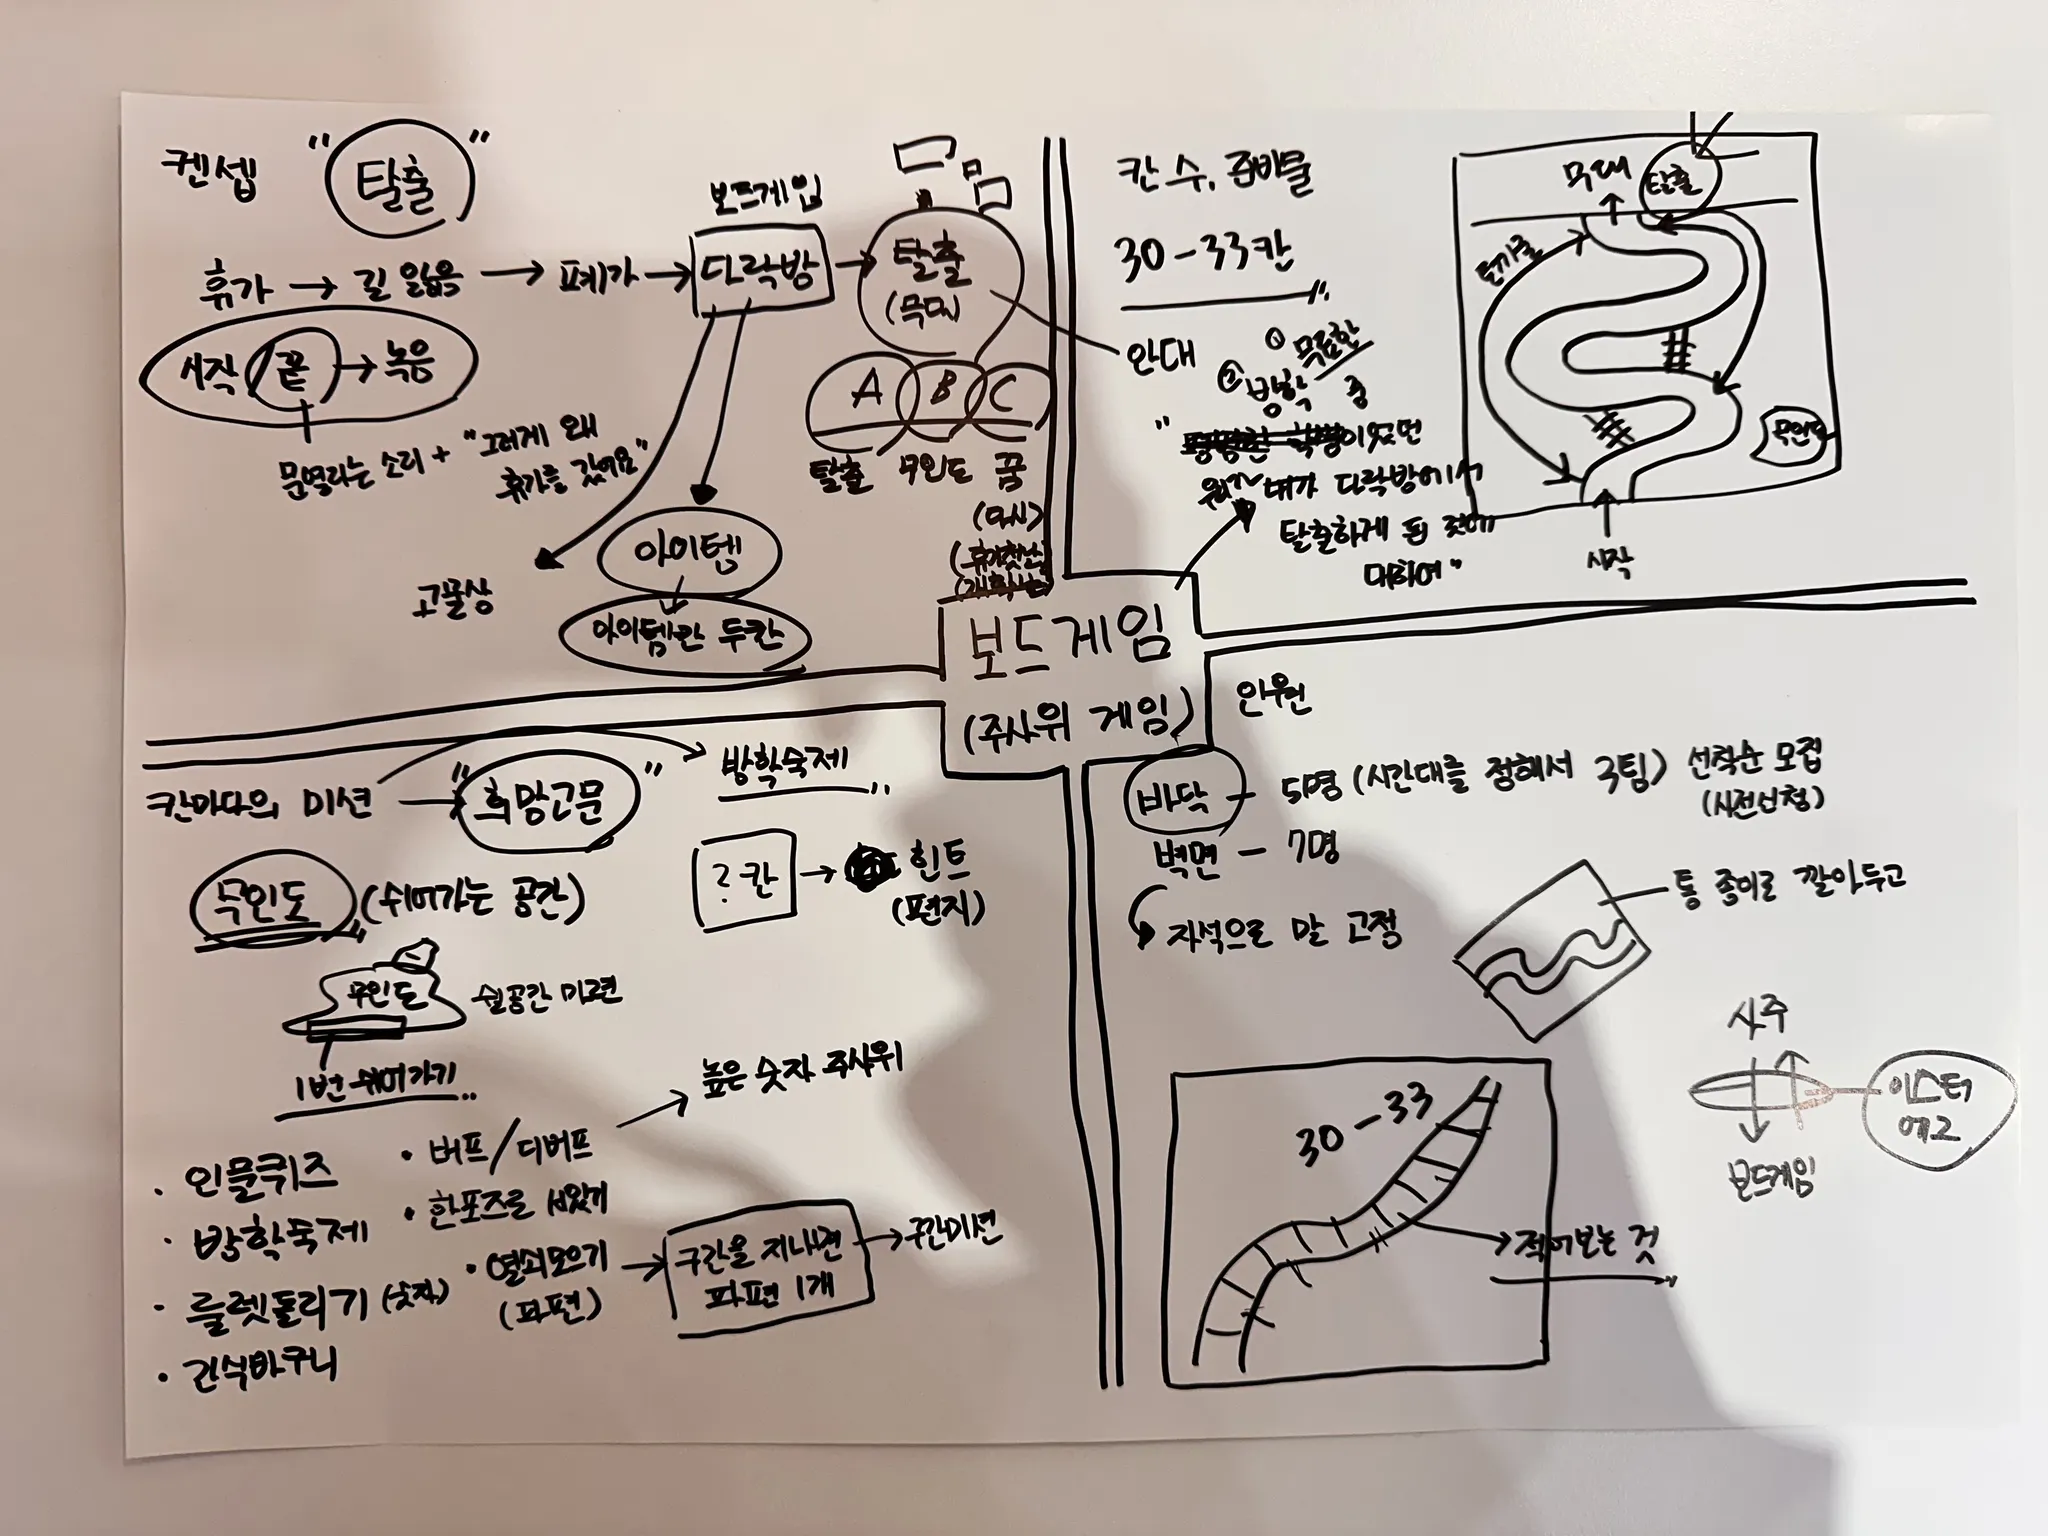 켄셉 "탈출"
휴가 → 길 잃음 → 폐가 → 다락방 → 탈출
보드게임
시작 끝 → 녹음
문열라는 소리 + "그러게 왜
휴가를 갔어요"
A B C
탈출 무인도 꿈
(다시)
고물상
아이템
아이템칸 두칸
칸 수, 준비물
30-33칸
안대
① 무료한
② 방학 중
이었던
내가 다락방에서
탈출하게 된 것에
대하여"
무대
탈출
무인도
시작
보드게임
(주사위 게임)
칸마다의 미션 → "희망고문"
방학숙제
무인도 (쉬어가는 공간)
? 칸 → 힌트
(편지)
무인도
쉴공간 마련
1번 쉬어가기
· 인물퀴즈
· 방학숙제
· 룰렛돌리기 (숫자)
· 간식바구니
· 버프/디버프 → 높은 숫자 주사위
· 한포즈로 서있기
· 열쇠모으기 → 구간을 지나면 → 구간미션
(파편)
파편 1개
인원
바닥 - 5명 (시간대를 정해서 3팀) 선착순 모집
(사전신청)
벽면 - 7명
자석으로 말 고정
통 종이로 깔아두고
사주
이스터
에그
보드게임
30-33
적어보는 것